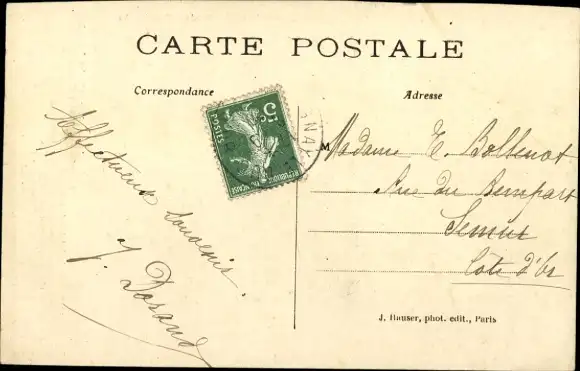 CARTE POSTALE
Correspondance
Adresse
5c
POSTES
REPUBLIQUE FRANÇAISE
Affectueux
souvenir.
J.
Madame E.
Rue du Rempart
Semur
Côte d'Or
J. Hauser, phot. edit., Paris